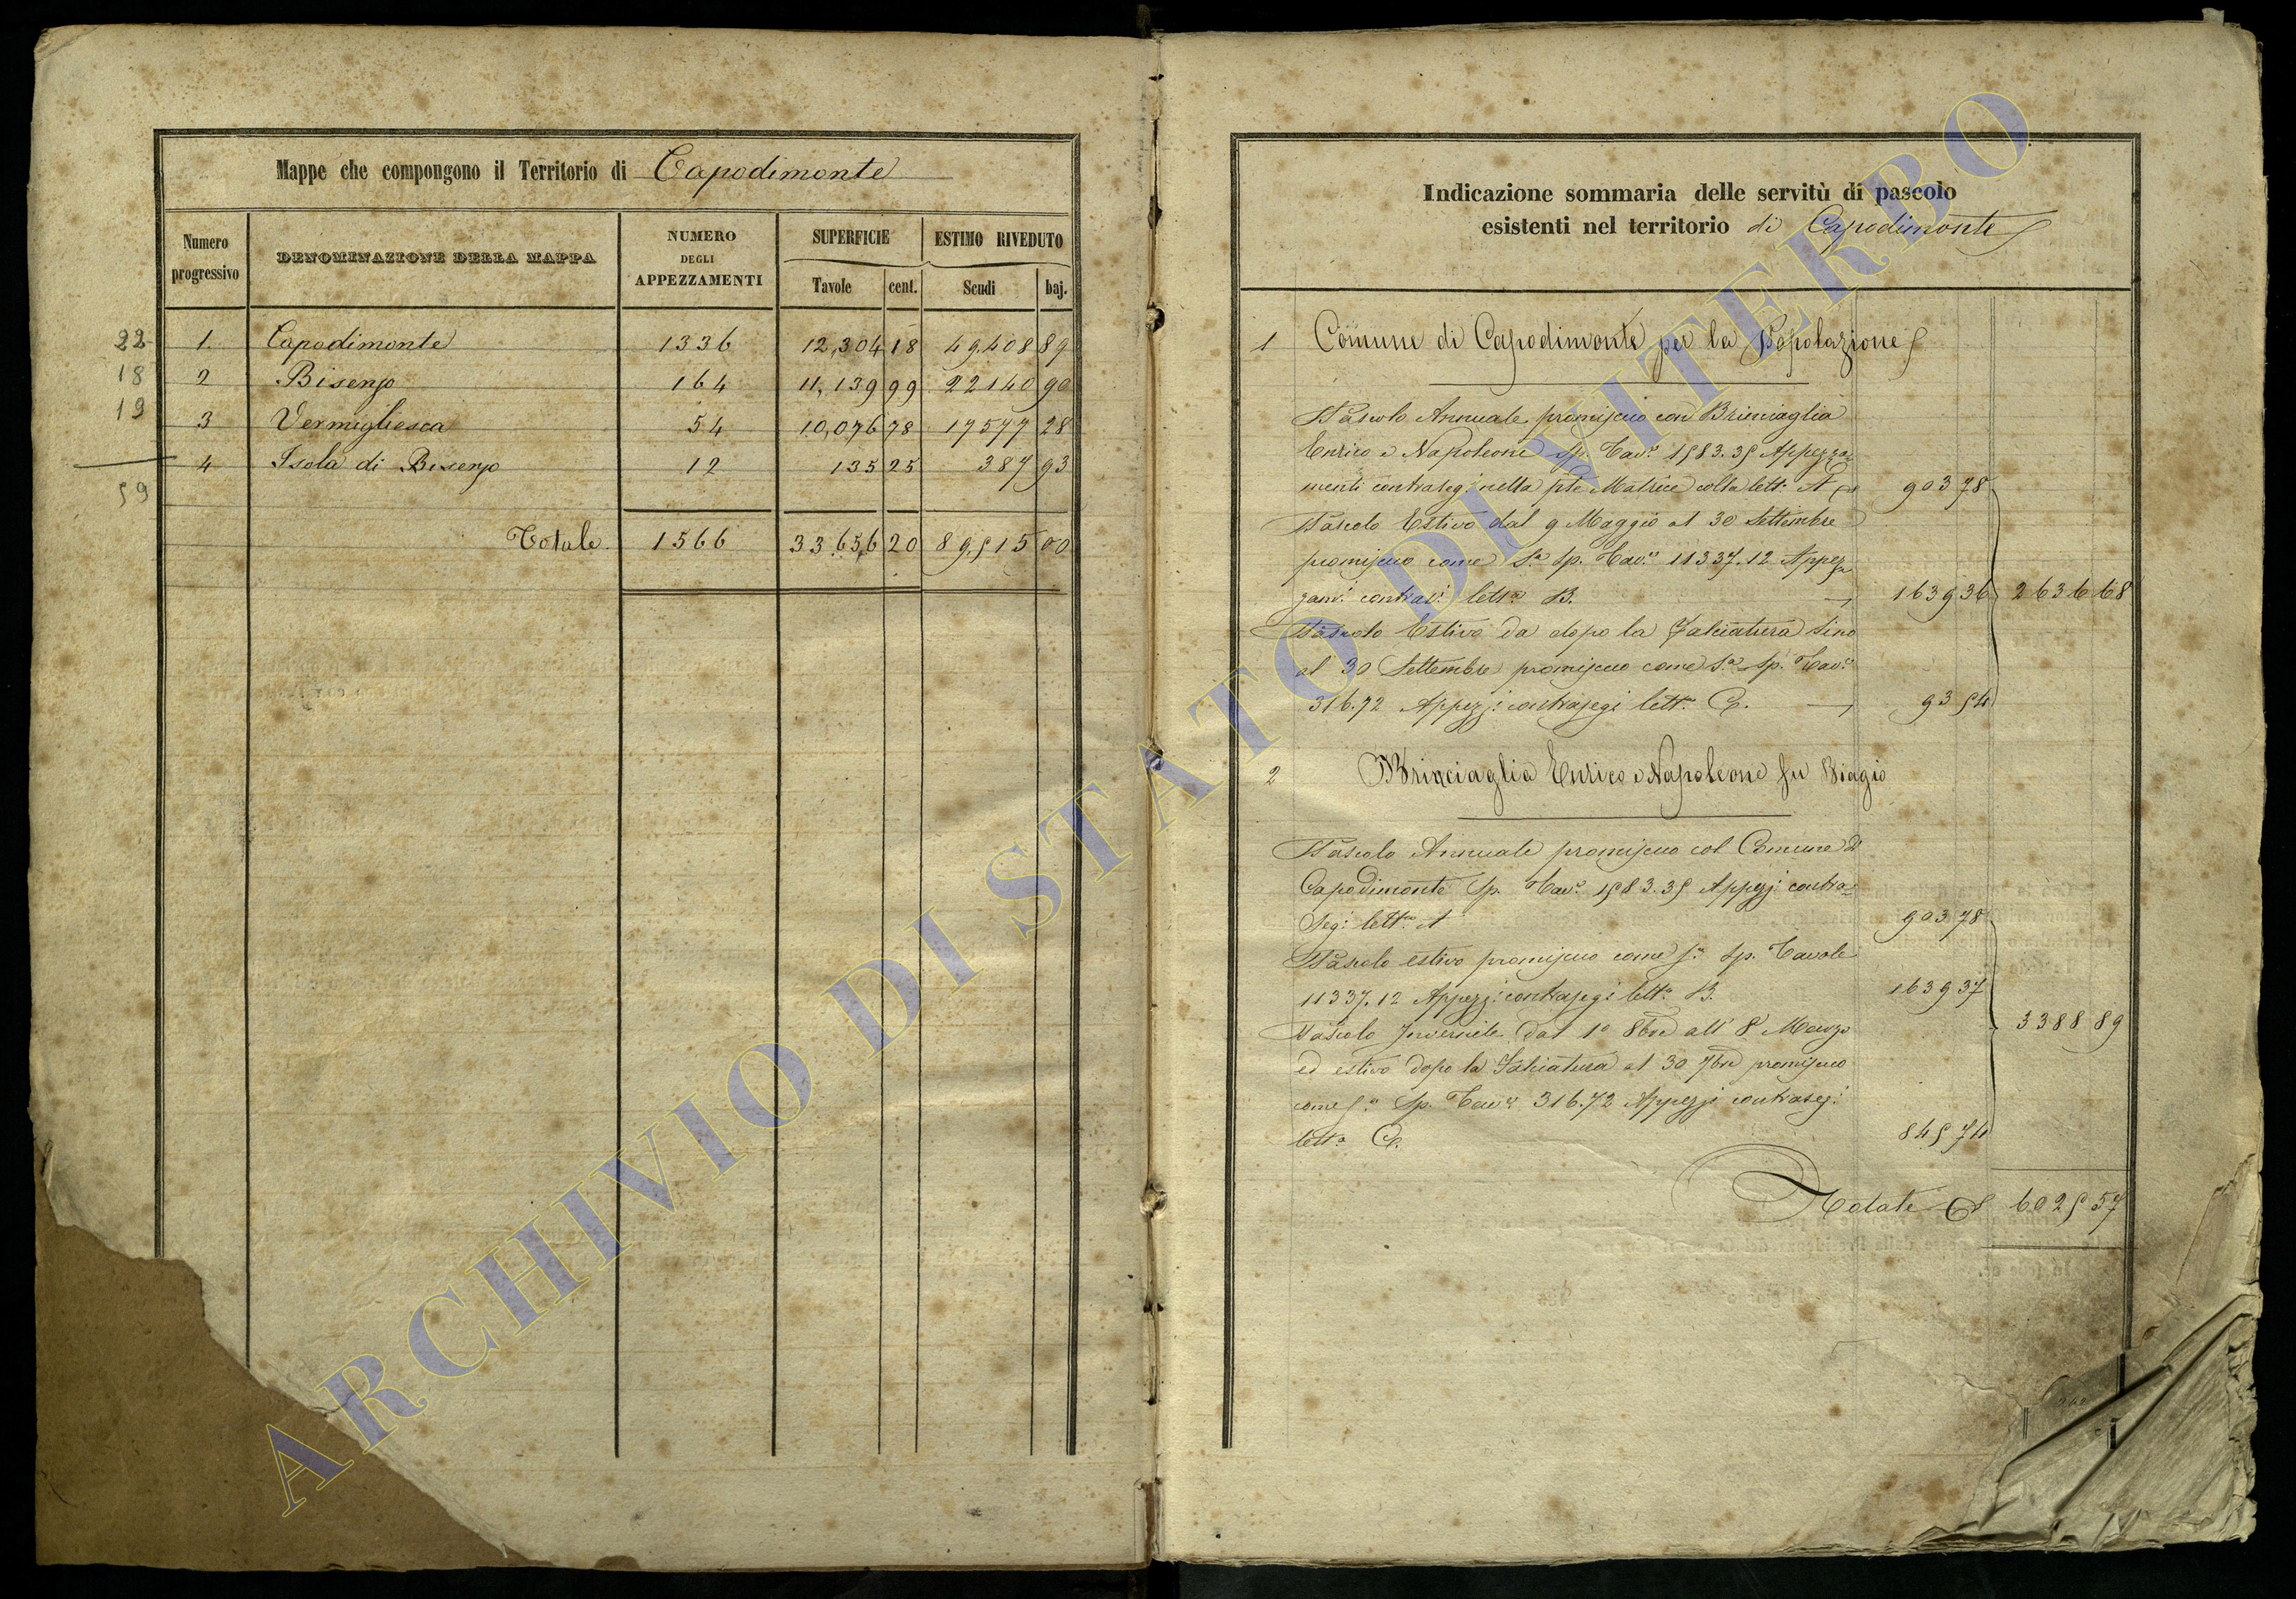 Mappe che compongono il Territorio di Capodimonte
Numero progressivo
DENOMINAZIONE DELLA MAPPA
NUMERO DEGLI APPEZZAMENTI
SUPERFICIE
ESTIMO RIVEDUTO
Tavole cent. Scudi baj.
22 1. Capodimonte 1336 12,304 18 49,408 89
18 2 Bisenzo 164 11,139 99 22140 90
19 3 Vermigliesca 54 10,076 78 17577 28
4 Isola di Bisenzo 12 135 25 387 93
59
Totale 1566 33,656 20 89,515 00
Indicazione sommaria delle servitù di pascolo
esistenti nel territorio di Capodimonte
1 Comune di Capodimonte per la Popolazione
Pascolo Annuale promiscuo con Brinciaglia
Enrico e Napoleone Sp. Tav.e 1583.35 Appezza
menti contraseg: nella pte Matrice colla lett. A 903 78
Pascolo Estivo dal 9 Maggio al 30 Settembre
promiscuo come S.a Sp. Tav.e 11337.12 Appez
zam.i lett.a B. 1639 36 2636 68
Pascolo Estivo da dopo la Falciatura Sino
al 30 Settembre promiscuo come S.a Sp. Tav.e
316.72 Appezz.i contrasegi lett.a C. 93 54
2 Brinciaglia Enrico e Napoleone fu Biagio
Pascolo Annuale promiscuo col Comune di
Capodimonte Sp. Tav.e 1583.35 Appezz.i contra=
Seg: lett.a A 903 78
Pascolo estivo promiscuo come S.a Sp. Tavole
11337.12 Appezz.i contrasegi lett.a B. 1639 37
Pascolo Invernile dal 1o 8bre all' 8 Marzo 3388 89
ed estivo dopo la Falciatura al 30 7bre promiscuo
come S.a Sp. Tav.e 316.72 Appezzi contrasegi
lett.a C. 845 74
Totale 6025 57
ARCHIVIO DI STATO DI VITERBO